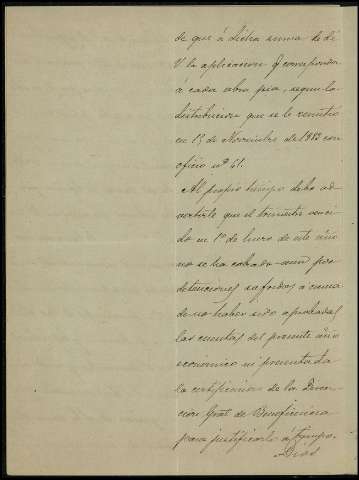 de que á dicha suma le dé
V la aplicacion q corresponda
á cada obra pia, segun la
distribucion que se le remitió
en 13 de Noviembre de 1883 con
oficio nº 41.
Al propio tiempo debo ad
vertirle que el trimestre venci
do en 1º de Enero de este año
no se ha cobrado aun por
detenciones sufridas á causa
de no haber sido aprobadas
las cuentas del presente año
economico ni presentada
la certificacion de la Direc
cion Gral de Beneficencia
para justificarlo á tiempo.
Dios